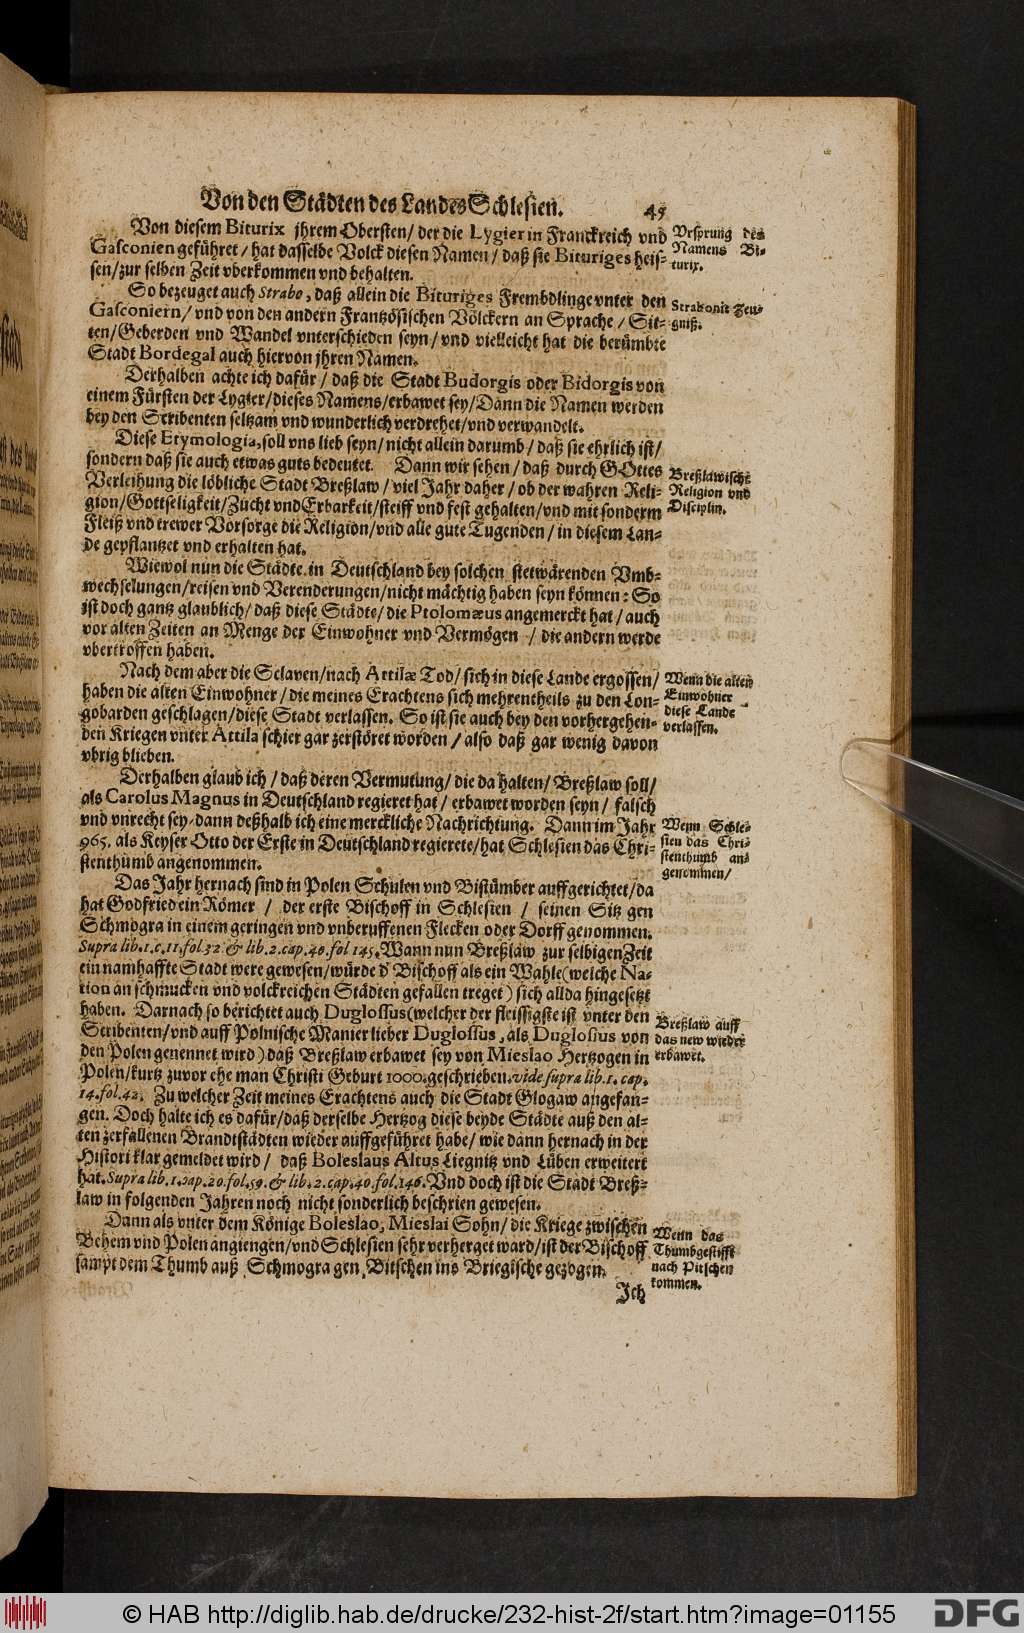 Von den Städten des Landes Schlesien.
45
Von diesem Biturix jhrem Obersten/ der die Lygier in Franckreich vnd
Gasconien geführet/ hat dasselbe Volck diesen Namen/ daß sie Bituriges heis-
sen/zur selben Zeit vberkommen vnd behalten.
Vrsprung des
Namens Bi-
turix.
So bezeuget auch Strabo, daß allein die Bituriges Frembdlinge vnter den
Gasconiern/ vnd von den andern Frantzösischen Völckern an Sprache/ Sit-
ten/Geberden vnd Wandel vnterschieden seyn/ vnd vielleicht hat die berümbte
Stadt Bordegal auch hiervon jhren Namen.
Strabonis Zeu-
gniß.
Derhalben achte ich dafür/ daß die Stadt Budorgis oder Bidorgis von
einem Fürsten der Lygier/dieses Namens/erbawet sey/Dann die Namen werden
bey den Scribenten seltzam vnd wunderlich verdrehet/vnd verwandelt.
Diese Etymologia, soll vns lieb seyn/ nicht allein darumb/ daß sie ehrlich ist/
sondern daß sie auch etwas guts bedeutet. Dann wir sehen/ daß durch GOttes
Verleihung die löbliche Stadt Breßlaw/ viel Jahr daher/ ob der wahren Reli-
gion/Gottseligkeit/Zucht vnd Erbarkeit/steiff vnd fest gehalten/vnd mit sonderm
Fleiß vnd trewer Vorsorge die Religion/vnd alle gute Tugenden/ in diesem Lan-
de gepflantzet vnd erhalten hat.
Breßlawische
Religion vnd
Disciplin.
Wiewol nun die Städte in Deutschland bey solchen stetwärenden Vmb-
wechselungen/reisen vnd Verenderungen/nicht mächtig haben seyn können: So
ist doch gantz glaublich/ daß diese Städte/ die Ptolomæus angemerckt hat/ auch
vor alten Zeiten an Menge der Einwohner vnd Vermögen/ die andern werde
vbertroffen haben.
Nach dem aber die Sclaven/nach Attilæ Tod/ sich in diese Lande ergossen/
haben die alten Einwohner/ die meines Erachtens sich mehrentheils zu den Lon-
gobarden geschlagen/diese Stadt verlassen. So ist sie auch bey den vorhergehen-
den Kriegen vnter Attila schier gar zerstöret worden/ also daß gar wenig davon
vbrig blieben.
Wenn die alten
Einwohner
diese Lande
verlassen.
Derhalben glaub ich/ daß deren Vermutung/ die da halten/ Breßlaw soll/
als Carolus Magnus in Deutschland regieret hat/ erbawet worden seyn/ falsch
vnd vnrecht sey/dann deßhalb ich eine merckliche Nachrichtung. Dann im Jahr
965. als Keyser Otto der Erste in Deutschland regierete/hat Schlesien das Chri-
stenthumb angenommen.
Wenn Schle-
sien das Chri-
stenthumb an-
genommen/
Das Jahr hernach sind in Polen Schulen vnd Bistümber auffgerichtet/da
hat Godfried ein Römer/ der erste Bischoff in Schlesien/ seinen Sitz gen
Schmogra in einem geringen vnd vnberuffenen Flecken oder Dorff genommen.
Supra lib. 1. c. 11. fol. 32. & lib. 2. cap. 40. fol 145. Wann nun Breßlaw zur selbigen Zeit
ein namhaffte Stadt were gewesen/würde d' Bischoff als ein Wahle(welche Na-
tion an schmucken vnd volckreichen Städten gefallen treget) sich allda hingesetzt
haben. Darnach so berichtet auch Duglossus(welcher der fleissigste ist vnter den
Scribenten/vnd auff Polnische Manier lieber Duglossus, als Duglosius von
den Polen genennet wird) daß Breßlaw erbawet sey von Mieslao Hertzogen in
Polen/kurtz zuvor ehe man Christi Geburt 1000. geschrieben. vide supra lib. 1. cap.
14. fol. 42. Zu welcher Zeit meines Erachtens auch die Stadt Glogaw angefan-
gen. Doch halte ich es dafür/daß derselbe Hertzog diese beyde Städte auß den al-
ten zerfallenen Brandtstädten wieder auffgeführet habe/ wie dann hernach in der
Histori klar gemeldet wird/ daß Boleslaus Altus Liegnitz vnd Lüben erweitert
hat. Supra lib. 1. cap. 20. fol. 59. & lib. 2. cap. 40. fol. 146. Vnd doch ist die Stadt Breß-
law in folgenden Jahren noch nicht sonderlich beschrien gewesen.
Breßlaw auff
das new wieder
erbawet.
Dann als vnter dem Könige Boleslao, Mieslai Sohn/ die Kriege zwischen
Behem vnd Polen angiengen/vnd Schlesien sehr verherget ward/ist der Bischoff
sampt dem Thumb auß Schmogra gen Bitschen ins Briegische gezogen.
Wenn das
Thumbgestifft
nach Pitschen
kommen.
Jch
© HAB http://diglib.hab.de/drucke/232-hist-2f/start.htm?image=01155
DFG